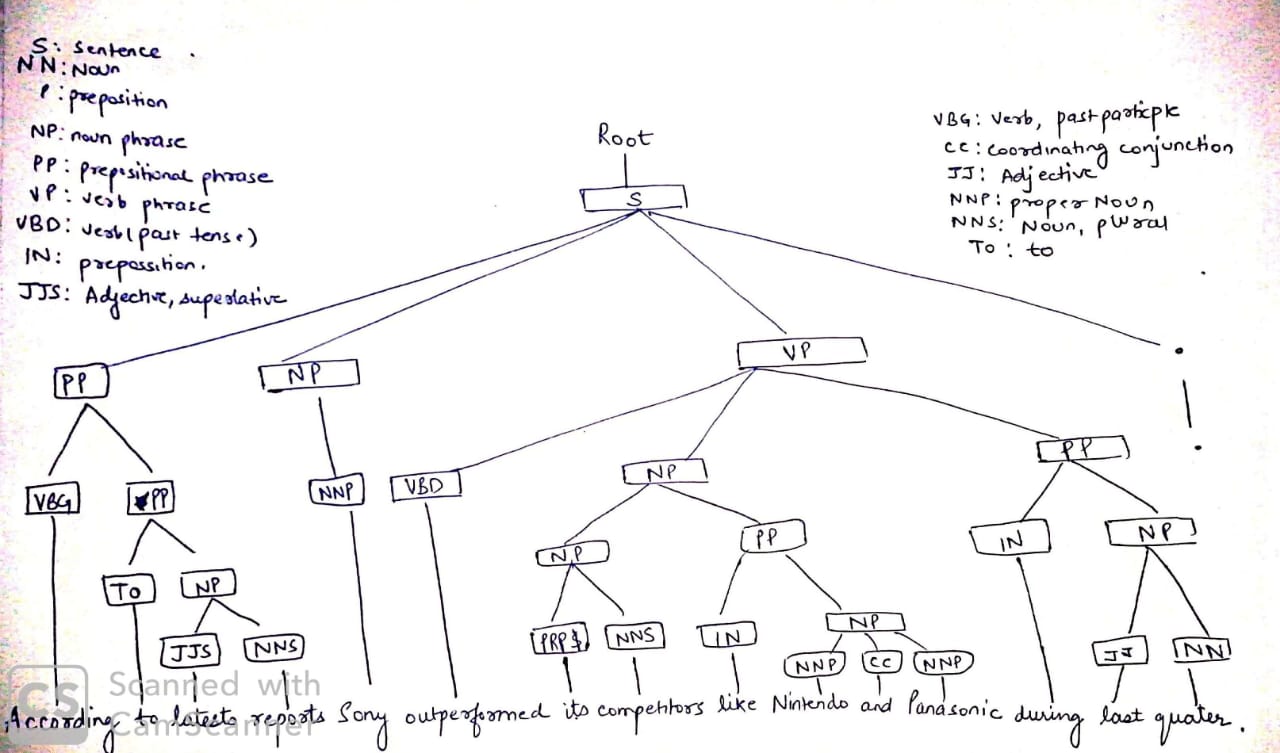 S: Sentence .
NN: Noun
P: preposition
NP: noun phrase
PP: prepositional phrase
VP: verb phrase
VBD: verb (past tense)
IN: prepossition.
JJS: Adjective, superlative
VBG: Verb, past participle
CC: Coordinating conjunction
JJ: Adjective
NNP: proper Noun
NNS: Noun, plural
To: to
Root
S
PP NP VP .
VBG PP NNP VBD NP PP .
To NP NP PP IN NP
JJS NNS PRP$ NNS IN NP JJ NN
NNP CC NNP
According to latests reports Sony outperformed its competitors like Nintendo and Panasonic during last quater.
CS Scanned with
CamScanner